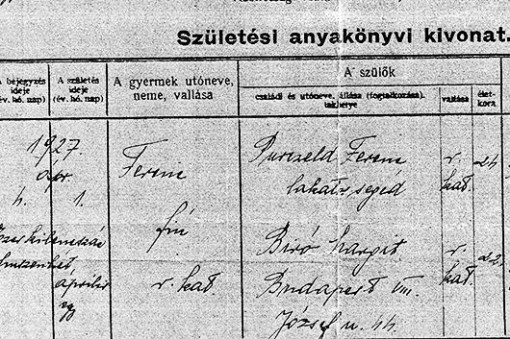 Születési anyakönyvi kivonat.
A bejegyzés ideje (év, hó, nap)
A születés ideje (év, hó, nap)
A gyermek utóneve, neme, vallása
A szülők
családi és utóneve, állása (foglalkozása), lakhelye
vallása
életkora
1927.
apr.
4. 1.
Ezerkilencszáz
huszonhét
április
Ferenc
fiú
r. kat.
Purczeld Ferenc
lakatos segéd
r. kat.
24
Biró Margit
Budapest VIII.
József u. 44
r. kat.
22